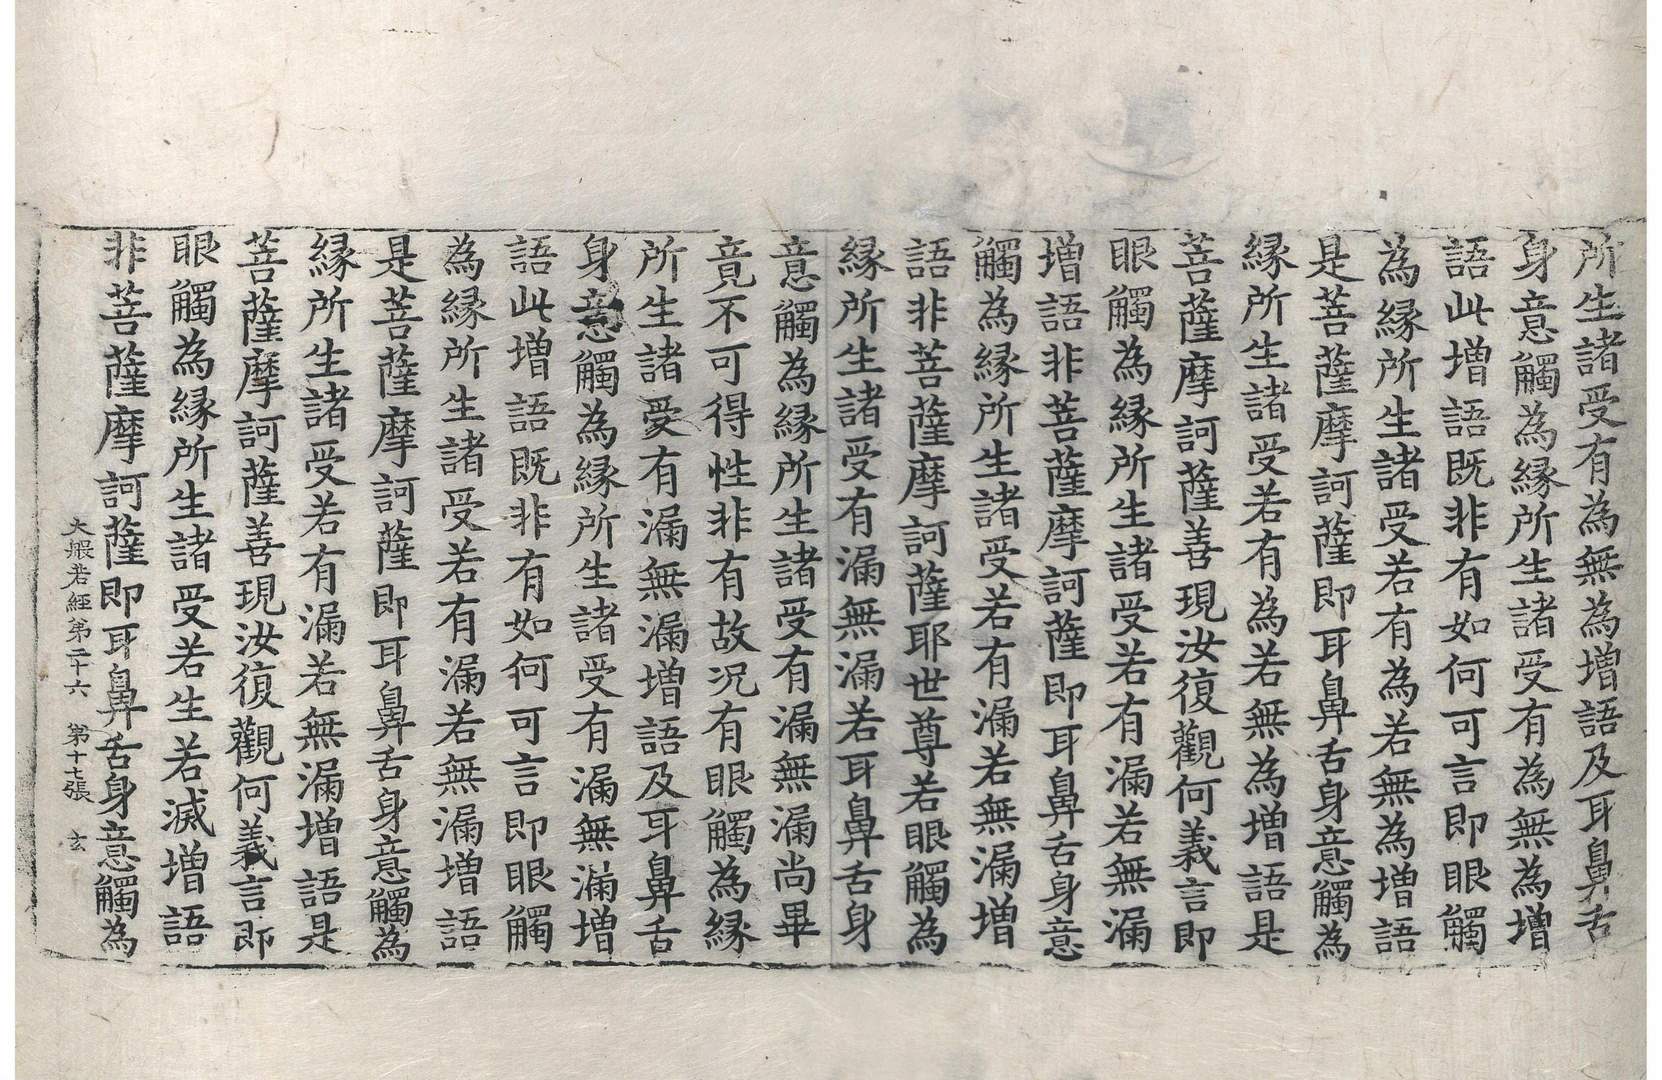 所生諸受有為無為增語及耳鼻舌
身意觸為縁所生諸受有為無為增
語此增語既非有如何可言即眼觸
為縁所生諸受若有為若無為增語
是菩薩摩訶薩即耳鼻舌身意觸為
縁所生諸受若有為若無為增語是
菩薩摩訶薩善現汝復觀何義言即
眼觸為縁所生諸受若有漏若無漏
增語非菩薩摩訶薩即耳鼻舌身意
觸為縁所生諸受若有漏若無漏增
語非菩薩摩訶薩耶世尊若眼觸為
縁所生諸受有漏無漏若耳鼻舌身
意觸為縁所生諸受有漏無漏尚畢
竟不可得性非有故況有眼觸為縁
所生諸受有漏無漏增語及耳鼻舌
身意觸為縁所生諸受有漏無漏增
語此增語既非有如何可言即眼觸
為縁所生諸受若有漏若無漏增語
是菩薩摩訶薩即耳鼻舌身意觸為
縁所生諸受若有漏若無漏增語是
菩薩摩訶薩善現汝復觀何義言即
眼觸為縁所生諸受若生若滅增語
非菩薩摩訶薩即耳鼻舌身意觸為
大般若經第二十六 第十七張 玄